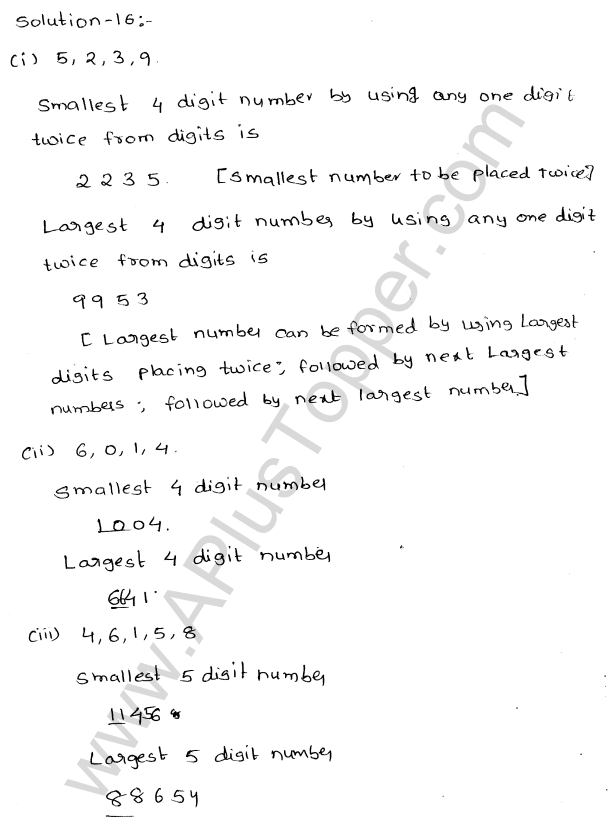 Solution-16:-
(i) 5, 2, 3, 9.
Smallest 4 digit number by using any one digit
twice from digits is
2 2 3 5. [Smallest number to be placed twice]
Largest 4 digit number by using any one digit
twice from digits is
9 9 5 3
[ Largest number can be formed by using Largest
digits placing twice; followed by next Largest
numbers ; followed by next largest number]
(ii) 6, 0, 1, 4.
Smallest 4 digit number
1004.
Largest 4 digit number
6641.
(iii) 4, 6, 1, 5, 8
Smallest 5 digit number
11456
Largest 5 digit number
88654
www.APlusTopper.com